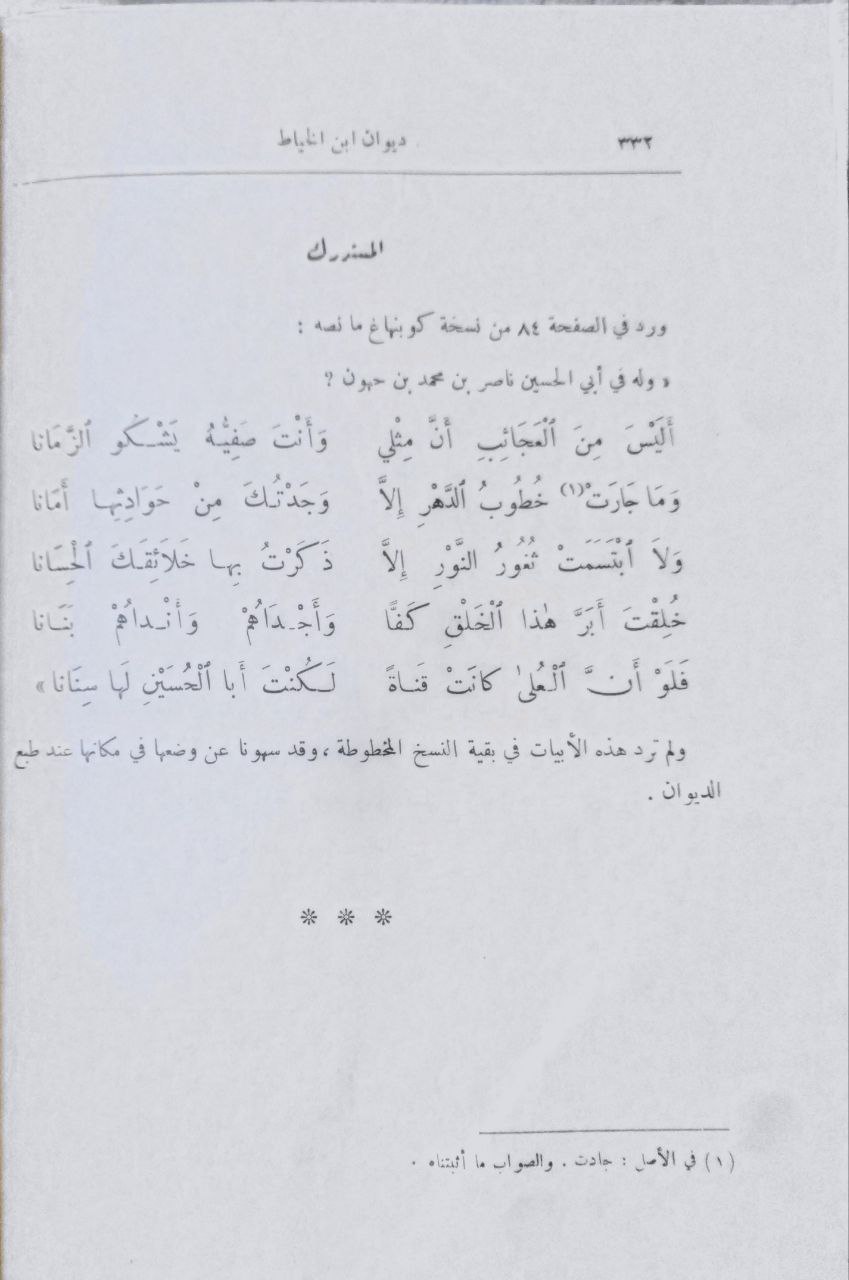 ٣٣٢ ديوان ابن الخياط
المستدرك
ورد في الصفحة ٨٤ من نسخة كوبنهاغ ما نصه :
« وله في أبي الحسين ناصر بن محمد بن حهون ؟
أَلَيْسَ مِنَ ٱلْعَجَائِبِ أَنَّ مِثْلي وَأَنْتَ صَفِيُّهُ يَشْكُو ٱلزَّمَانا
وَمَا جَارَتْ(١) خُطُوبُ ٱلدَّهْرِ إِلاَّ وَجَدْتُكَ مِنْ حَوَادِثِها أَمَانا
وَلاَ ٱبْتَسَمَتْ ثُغُورُ النَّوْرِ إِلاَّ ذَكَرْتُ بِها خَلاَئِقَكَ ٱلْحِسَانا
خُلِقْتَ أَبَرَّ هٰذا ٱلْخَلْقِ كَفًّا وَأَجْدَاهُمْ وَأَنْداهُمْ بَنَانا
فَلَوْ أَنَّ ٱلْعُلىٰ كانَتْ قَناةً لَكُنْتَ أَبا ٱلْحُسَيْنِ لَها سِنَانا »
ولم ترد هذه الأبيات في بقية النسخ المخطوطة ، وقد سهونا عن وضعها في مكانها عند طبع
الديوان .
* * *
(١) في الأصل : جادت . والصواب ما أثبتناه .